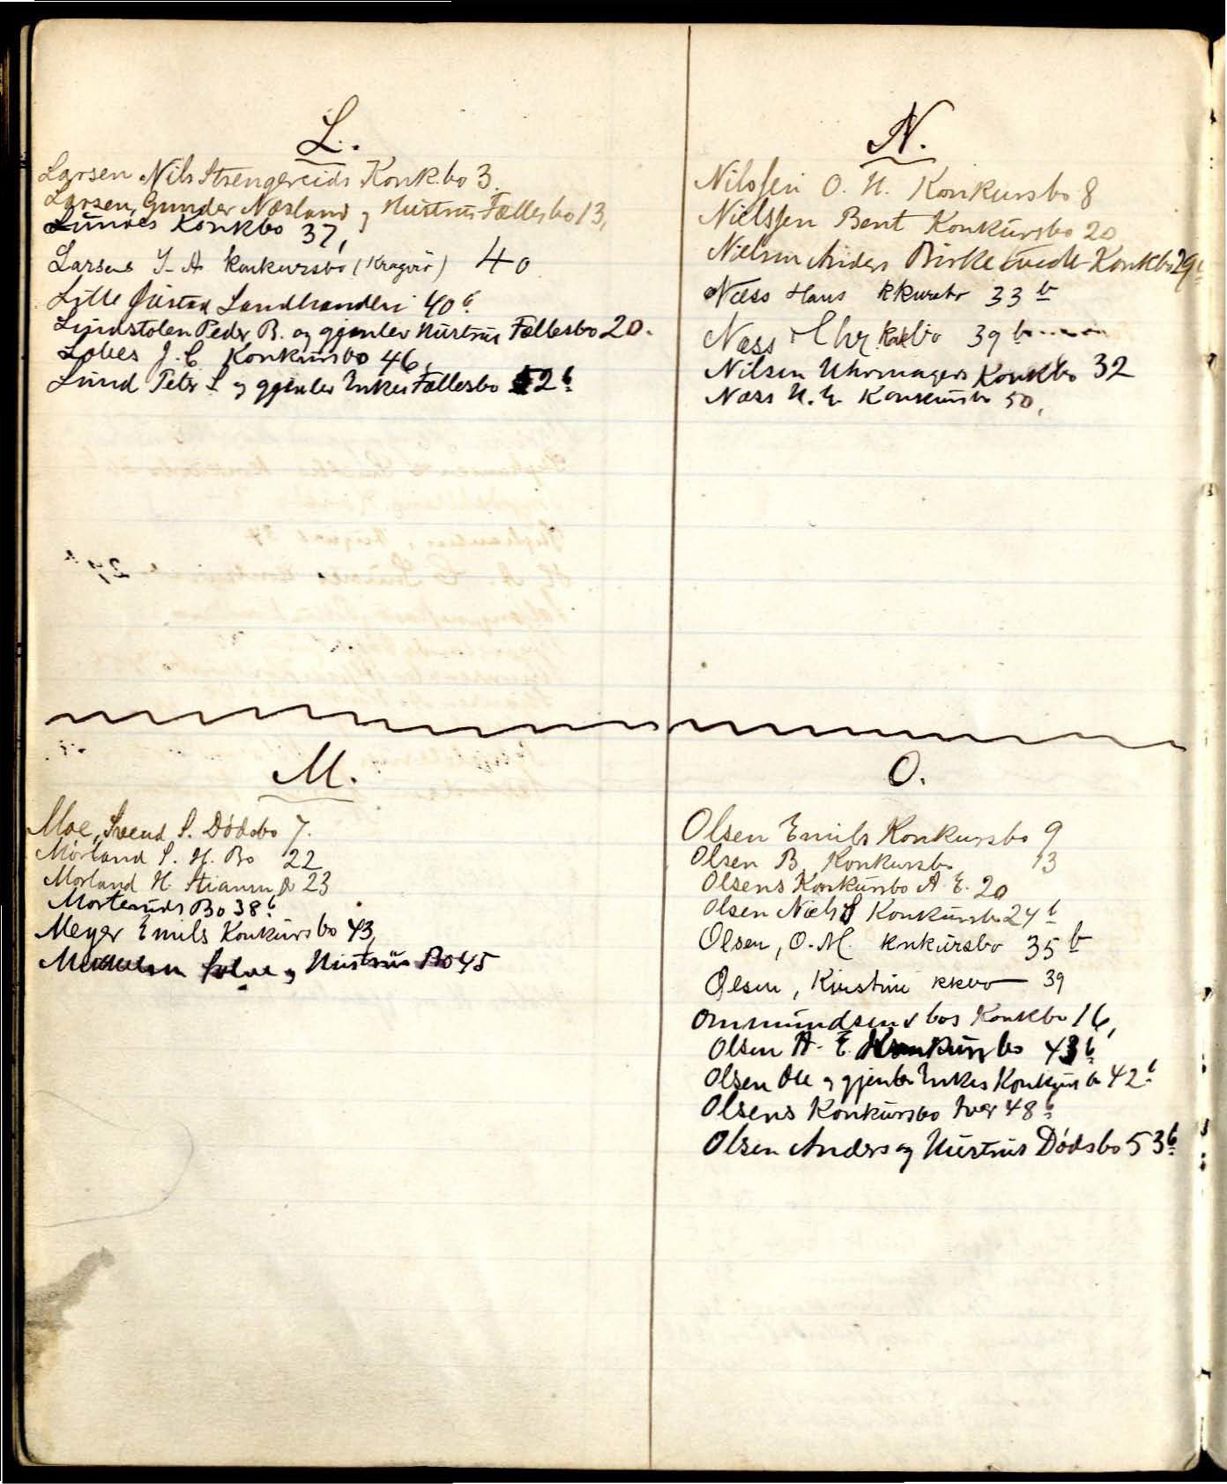 L.
Larsen Nils Strengereids Konk.bo 3.
Larsen, Gunder Næsland og Hustrus Fællesbo 13,
Lundes Konkbo 37,
Larsens J. A konkursbo (Kragerø) 40
Lille Gustav Landhanderi 40 b
Lundstolen Peder B. og gjenlev Hustrus Fællesbo 20.
Lohes J. C Konkursbo 46,
Lund Peter S. og gjenlev Enkes Fællesbo 52 b
M.
Moe, Svend S. Dødsbo 7.
Mørland S. H. Bo 22
Mørland H. 23
Bo 38 b
Meyer Emils Konkursbo 43,
og Hustrus Bo 45
N.
Nilssen O. N. Konkursbo 8
Nielssen Bent Konkursbo 20
Nielsen Anders Birketvedt Konkbo 29 b
Næss Hans kkursbo 33 b
Næss Chr. kkbo 39 b
Nilsen Uhrmagers Konkbo 32
Næss N. E. Konkursbo 50,
O.
Olsen Emils Konkursbo 9
Olsen B. Konkursbo 13
Olsens Konkursbo A. E. 20
Olsen Niels S Konkursbo 24 b
Olsen, O. M. konkursbo 35 b
Olsen, Kirstine kkbo 39
Ommundsens bos Konkbo 16,
Olsen A. E. Konkursbo 43 b
Olsen Ole og gjenlev Enkes Konkurs bo 42 b
Olsens Konkursbo Iver 48 b
Olsen Anders og Hustrus Dødsbo 53 b